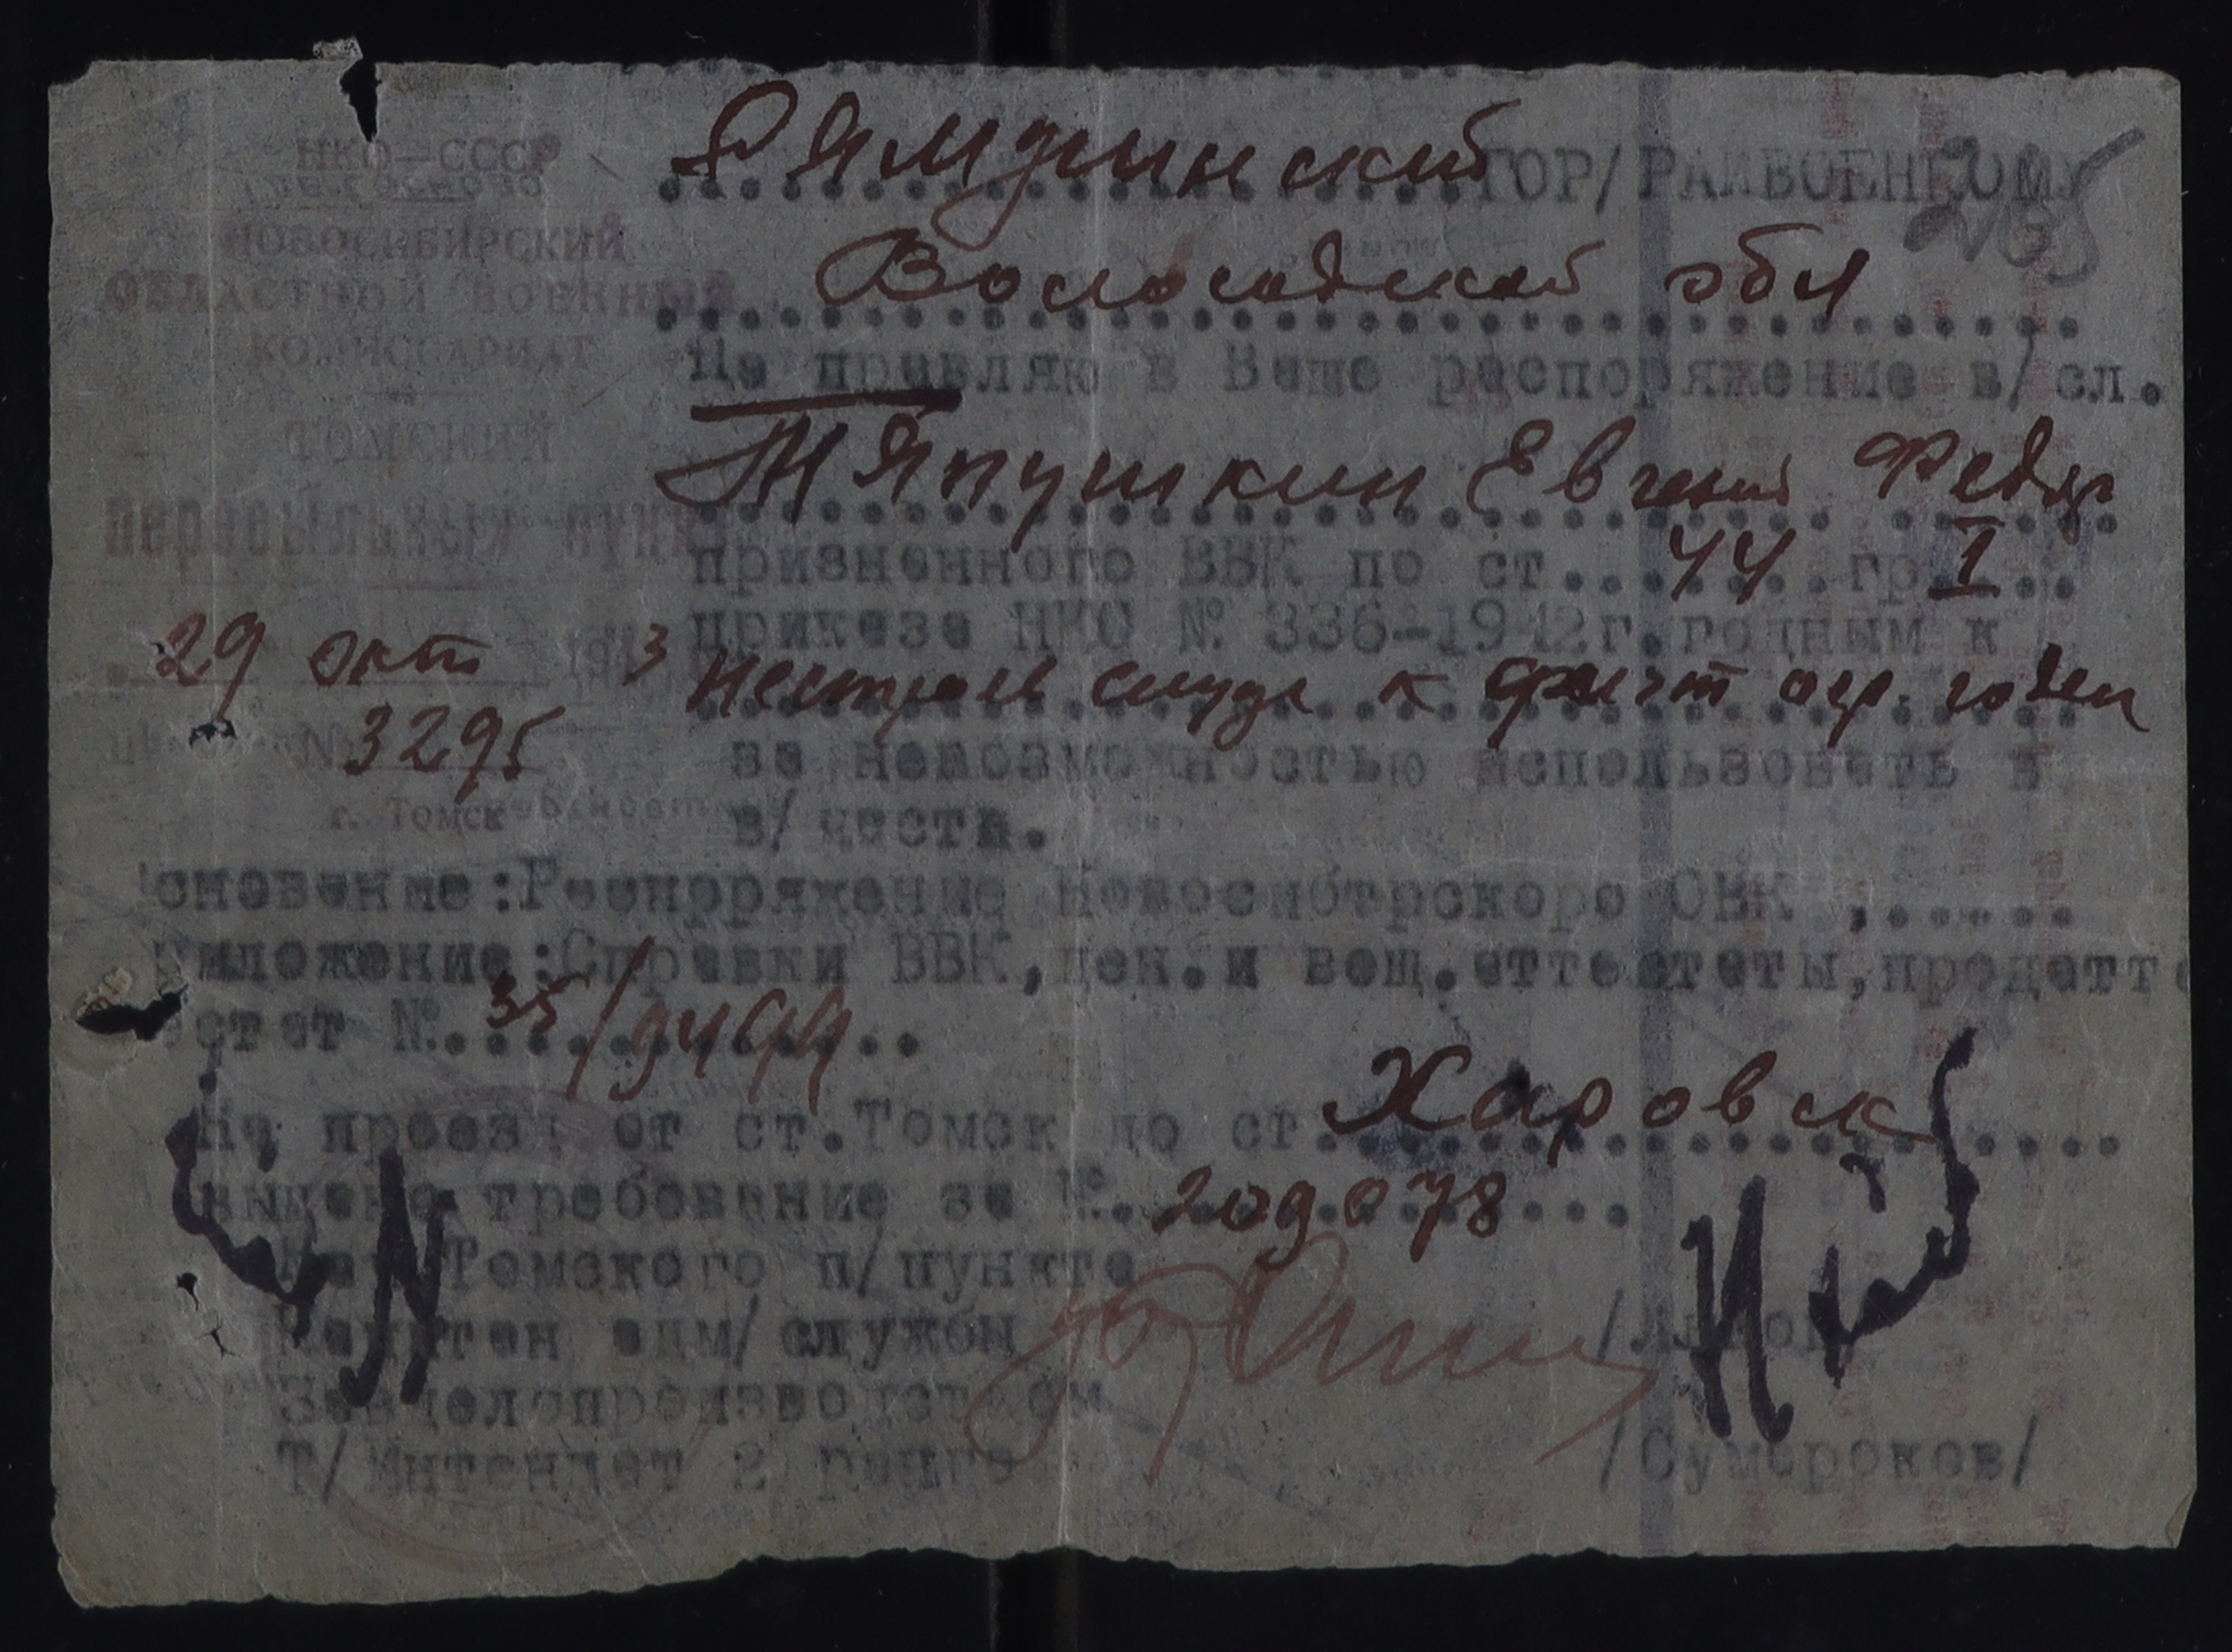 НКО—СССР
НОВОСИБИРСКИЙ
ОБЛАСТНОЙ ВОЕННЫЙ
КОМИССАРИАТ
ТОМСКИЙ
пересыльный пункт
29 окт 194 3
№ 3295
г. Томск
265
ГОР/РАЙВОЕНКОМУ
Вологодской обл
На правляю в Ваше распоряжение в/сл.
Тяпушкин Евгений Федор
признанного ВВК по ст. 44 гр. I
приказа НКО № 336-1942г. годным к
нестроев службе к физич т огр. годен
за невозможностью использовать в
в/части.
снование: Распоряжение Новосибирского ОВК,.....
иложение: Справки ВВК, ден. и вещ. аттестаты, продатт
естат №. 35/9499
На проезд от ст. Томск до ст. Харовск
выдано требование за №. 209078
Нач Томского п/пункта
Капитан адм/службы
Завделопроизводством
Т/Интендат 2 ранга /Сумароков/